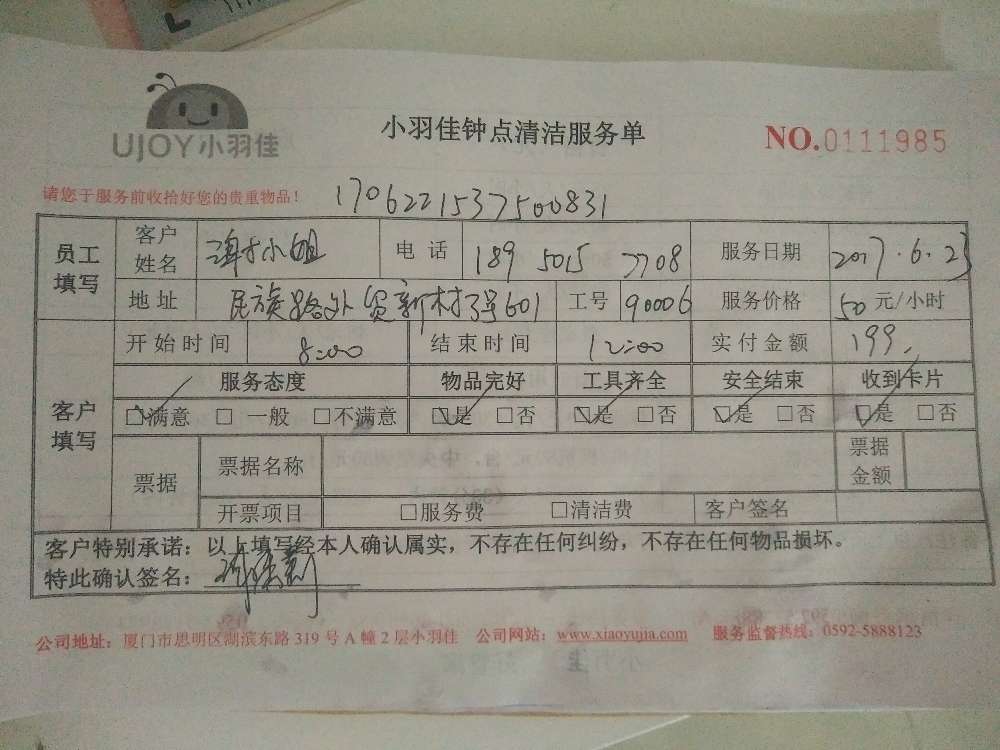 UJOY小羽佳
小羽佳钟点清洁服务单
NO.0111985
请您于服务前收拾好您的贵重物品！
1706221537500831
员工填写 客户姓名 小姐 电话 189 5015 7708 服务日期 2017.6.23
地址 民族路外贸新村3号601 工号 90006 服务价格 50元/小时
客户填写 开始时间 8:00 结束时间 12:00 实付金额 199.
服务态度 物品完好 工具齐全 安全结束 收到卡片
☑满意 □一般 □不满意 ☑是 □否 ☑是 □否 ☑是 □否 ☑是 □否
票据 票据名称 票据金额
开票项目 □服务费 □清洁费 客户签名
客户特别承诺：以上填写经本人确认属实，不存在任何纠纷，不存在任何物品损坏。
特此确认签名：
公司地址：厦门市思明区湖滨东路319号A幢2层小羽佳 公司网站：www.xiaoyujia.com 服务监督热线：0592-5888123